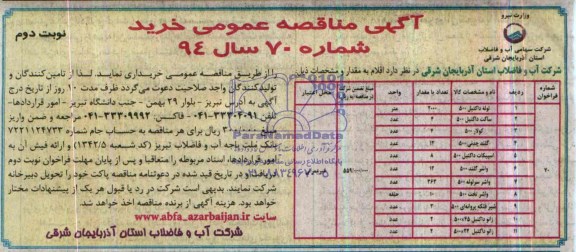 وزارت نیرو
شرکت سهامی آب و فاضلاب
استان آذربایجان شرقی
آگهی مناقصه عمومی خرید
شماره ۷۰ سال ۹۴
نوبت دوم
شرکت آب و فاضلاب استان آذربایجان شرقی در نظر دارد اقلام به مقدار و مشخصات ذیل
را از طریق مناقصه عمومی خریداری نماید. لذا از تامین‌کنندگان و
تولیدکنندگان واجد صلاحیت دعوت می‌گردد ظرف مدت ۱۰ روز از تاریخ درج
آگهی به آدرس تبریز - بلوار ۲۹ بهمن - جنب دانشگاه تبریز - امور قراردادها-
تلفن ۳۳۳۰۴۰۹۱-۰۴۱ فاکس: ۳۳۳۰۹۹۹۲-۰۴۱ مراجعه و ضمن واریز
ریال برای هر مناقصه به حساب جام شماره ۷۲۲۱۱۲۴۷۳۳
بانک ملت باجه آب و فاضلاب تبریز (کد شعبه ۱۳۴۲/۵) و ارائه فیش آن به
امور قراردادها، اسناد مربوطه را متعاقبا و پس از پایان مهلت فراخوان نوبت دوم
دریافت و در تاریخ قید شده در دعوتنامه مناقصه پاکت خود را تحویل دبیرخانه
شرکت نمایند. بدیهی است شرکت در رد یا قبول هر یک از پیشنهادات مختار
خواهد بود. هزینه آگهی از برنده مناقصه اخذ خواهد شد.
سایت www.abfa_azarbaijan.ir
شرکت آب و فاضلاب استان آذربایجان شرقی
شماره فراخوان | ردیف | نام و مشخصات کالا | تعداد یا مقدار | واحد | مبلغ تضمین شرکت در مناقصه به ریال | محل اعتبار
۷۰
۱ | لوله داکتیل ۵۰۰ | ۲۰۰۰ | متر
۲ | ساکت داکتیل ۵۰۰ | ۴ | عدد
۳ | کولار ۵۰۰ | ۴ | عدد
۴ | گلند چدنی ۵۰۰ | ۱۲ | عدد
۵ | اسپیکات داکتیل ۵۰۰ | ۸ | عدد
۶ | واشر گلند ۵۰۰ | ۱۲ | عدد
۷ | واشر سرلوله ۵۰۰ | ۳۶۳ | عدد
۸ | واشر تخت ۵۰۰ | ۱۰ | حلقه
۹ | شیر فلکه پروانه‌ای ۵۰۰ | ۳ | عدد
۱۰ | زانو داکتیل ۴۵×۵۰۰ | عدد
۱۱ | زانو داکتیل ۲۲×۵۰۰ | عدد
ParsNamadData